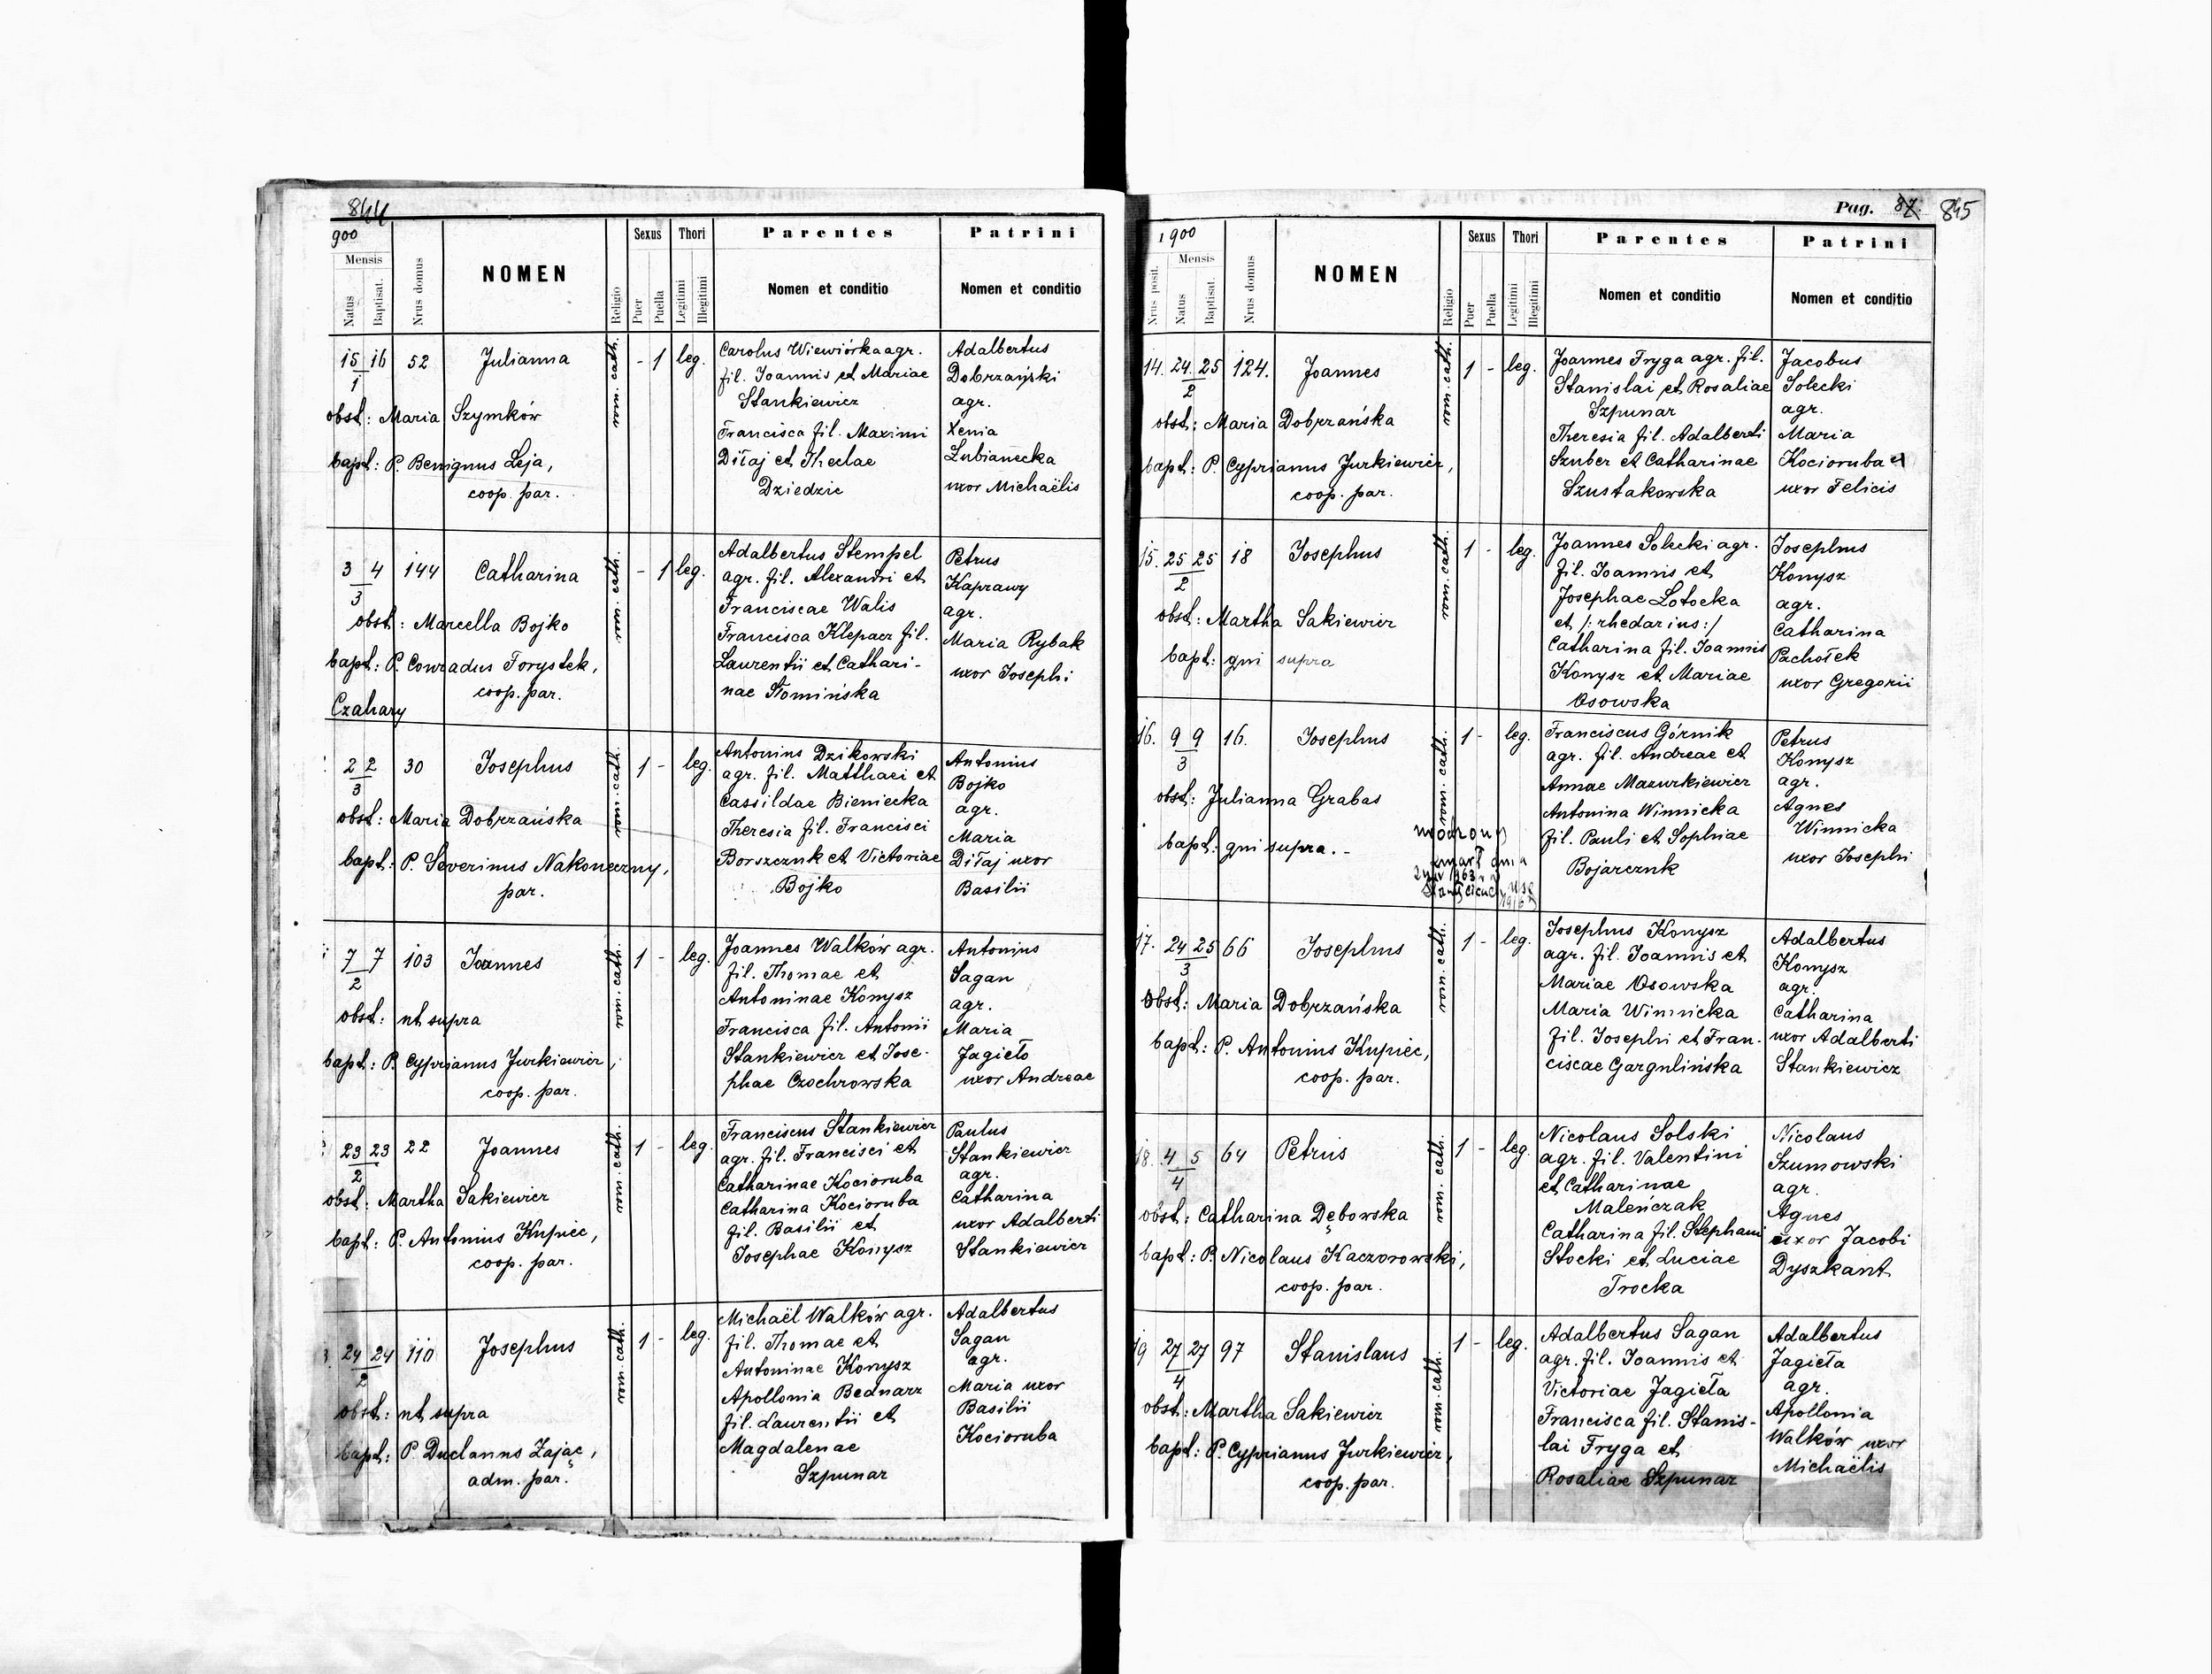 844
900
Mensis
Natus
Baptisat.
Nrus domus
NOMEN
Religio
Sexus
Puer
Puella
Thori
Legitimi
Illegitimi
Parentes
Nomen et conditio
Patrini
Nomen et conditio
15 16 52 Julianna rom. cath. - 1 leg.
1
obst: Maria Szymków
bapt: P. Benignus Leja,
coop. par.
Carolus Wiewiórka agr.
fil. Joannis et Mariae
Stankiewicz
Francisca fil. Maximi
Diłaj et Theclae
Dziedzic
Adalbertus
Dobrzański
agr.
Xenia
Łubianecka
uxor Michaëlis
3 4 144 Catharina rom. cath. - 1 leg.
3
obst: Marcella Bojko
bapt: P. Conradus Forystek,
coop. par.
Czahary
Adalbertus Stempel
agr. fil. Alexandri et
Franciscae Walis
Francisca Klepacz fil.
Laurentii et Cathari-
nae Słomińska
Petrus
Kaprawy
agr.
Maria Rybak
uxor Josephi
2 2 30 Josephus rom. cath. 1 - leg.
3
obst: Maria Dobrzańska
bapt: P. Severinus Nakoneczny,
par.
Antonius Dzikowski
agr. fil. Matthaei et
Cassildae Bieniecka
Theresia fil. Francisci
Borszczuk et Victoriae
Bojko
Antonius
Bojko
agr.
Maria
Diłaj uxor
Basilii
7 7 103 Joannes rom. cath. 1 - leg.
2
obst: ut supra
bapt: P. Cyprianus Jurkiewicz,
coop. par.
Joannes Walków agr.
fil. Thomae et
Antoninae Konysz
Francisca fil. Antonii
Stankiewicz et Jose-
phae Czochrowska
Antonius
Sagan
agr.
Maria
Jagieło
uxor Andreae
23 23 22 Joannes rom. cath. 1 - leg.
2
obst: Martha Sakiewicz
bapt: P. Antonius Kupiec,
coop. par.
Franciscus Stankiewicz
agr. fil. Francisci et
Catharinae Kocioruba
Catharina Kocioruba
fil. Basilii et
Josephae Konysz
Paulus
Stankiewicz
agr.
Catharina
uxor Adalberti
Stankiewicz
24 24 110 Josephus rom. cath. 1 - leg.
2
obst: ut supra
bapt: P. Duclanus Zając,
adm. par.
Michaël Walków agr.
fil. Thomae et
Antoninae Konysz
Apollonia Bednarz
fil. Laurentii et
Magdalenae
Szpunar
Adalbertus
Sagan
agr.
Maria uxor
Basilii
Kocioruba
Pag. 87. 845
1900
Nrus posit.
Mensis
Natus
Baptisat.
Nrus domus
NOMEN
Religio
Sexus
Puer
Puella
Thori
Legitimi
Illegitimi
Parentes
Nomen et conditio
Patrini
Nomen et conditio
14. 24. 25 124. Joannes rom. cath. 1 - leg.
2
obst: Maria Dobrzańska
bapt: P. Cyprianus Jurkiewicz,
coop. par.
Joannes Fryga agr. fil.
Stanislai et Rosaliae
Szpunar
Theresia fil. Adalberti
Szuber et Catharinae
Szustakowska
Jacobus
Solecki
agr.
Maria
Kocioruba
uxor Felicis
15. 25 25 18 Josephus rom. cath. 1 - leg.
2
obst: Martha Sakiewicz
bapt: qui supra
Joannes Solecki agr.
fil. Joannis et
Josephae Łotocka
et /: rhedarius :/
Catharina fil. Joannis
Konysz et Mariae
Osowska
Josephus
Konysz
agr.
Catharina
Pachołek
uxor Gregorii
16. 9 9 16. Josephus rom. cath. 1 - leg.
3
obst: Julianna Grabas
bapt: qui supra. -
zmarł dnia
Franciscus Górnik
agr. fil. Andreae et
Annae Mazurkiewicz
Antonina Winnicka
fil. Pauli et Sophiae
Bojarczuk
Petrus
Konysz
agr.
Agnes
Winnicka
uxor Josephi
17. 24 25 66 Josephus rom. cath. 1 - leg.
3
Obst: Maria Dobrzańska
bapt: P. Antonius Kupiec,
coop. par.
Josephus Konysz
agr. fil. Joannis et
Mariae Osowska
Maria Winnicka
fil. Josephi et Fran-
ciscae Gargulińska
Adalbertus
Konysz
agr.
Catharina
uxor Adalberti
Stankiewicz
18. 4 5 64 Petrus rom. cath. 1 - leg.
4
obst: Catharina Dębowska
bapt: P. Nicolaus Kaczorowski,
coop. par.
Nicolaus Solski
agr. fil. Valentini
et Catharinae
Maleńczak
Catharina fil. Stephani
Stocki et Luciae
Trocka
Nicolaus
Szumowski
agr.
Agnes
uxor Jacobi
Dyszkant
19 27 27 97 Stanislaus rom. cath. 1 - leg.
4
obst: Martha Sakiewicz
bapt: P. Cyprianus Jurkiewicz,
coop. par.
Adalbertus Sagan
agr. fil. Joannis et
Victoriae Jagieła
Francisca fil. Stanis-
lai Fryga et
Rosaliae Szpunar
Adalbertus
Jagieła
agr.
Apollonia
Walków uxor
Michaëlis